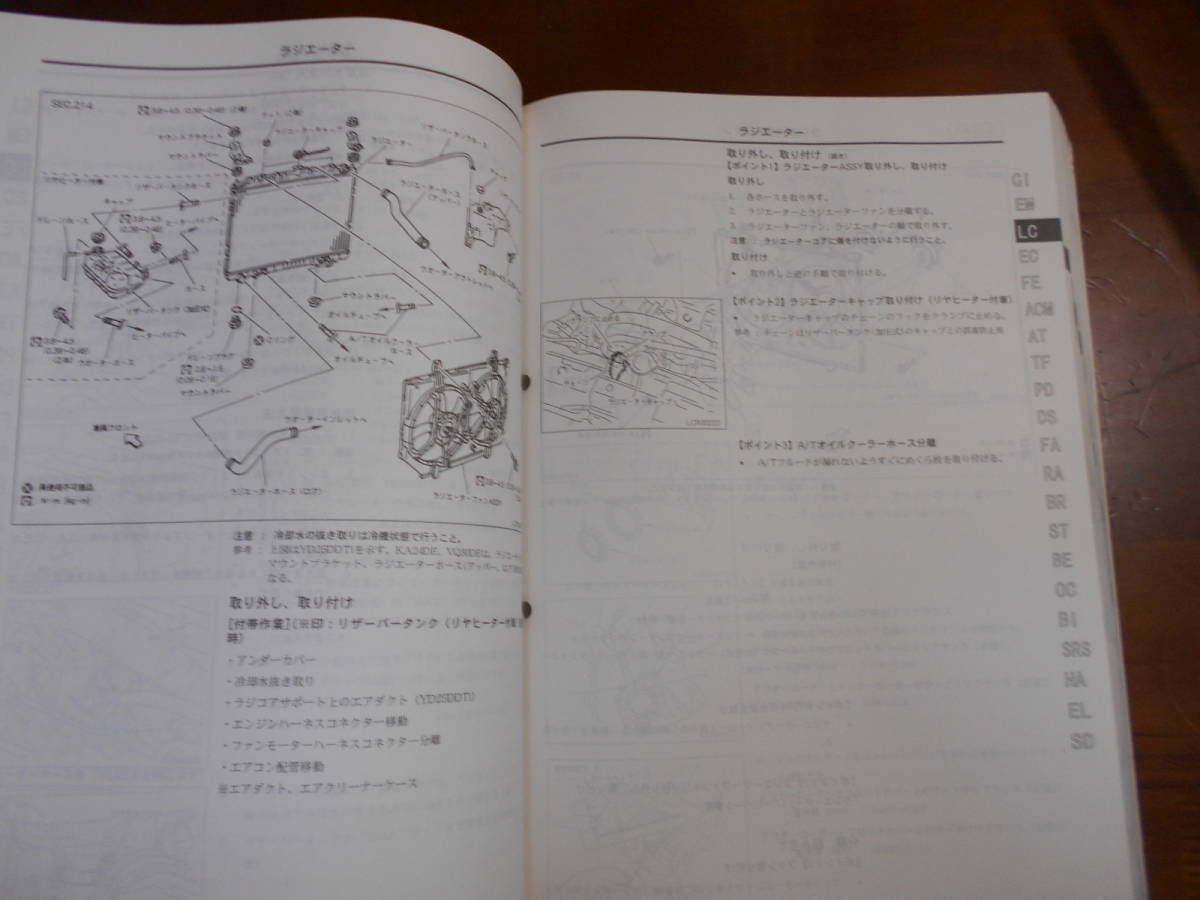 ラジエーター
SEC.214
3.8~4.5 (0.39~0.46) (2個)
マウントブラケット
マウントラバー
ラジエーターキャップ
ラジエーター
リザーバータンクホース
リヤヒーター付車
リザーバータンクホース
キャップ
ドレーンホース
3.8~4.5
(0.39~0.46)
ヒーターパイプへ
ホース
ラジエーターホース
(アッパー)
ウオーターアウトレットへ
リザーバータンク (加圧式)
ヒーターパイプへ
3.8~4.5
(0.39~0.46)
(2個)
ウオーターホース
マウントラバー
オイルチューブへ
Oリング
A/Tオイルクーラー
ホース
ドレーンプラグ
オイルチューブへ
マウントラバー
ウオーターインレットへ
車両フロント
ラジエーターホース (ロア)
ラジエーターファンASSY
再使用不可部品
N・m (kg-m)
注意 : 冷却水の抜き取りは冷機状態で行うこと。
参考 : 上図はYD25DDTiを示す。KA24DE、VQ30DEは、
マウントブラケット、ラジエーターホース(アッパー、
なる。
取り外し、取り付け
[付帯作業](※印:リザーバータンク(リヤヒーター付車
時)
・アンダーカバー
・冷却水抜き取り
・ラジコアサポート上のエアダクト(YD25DDTi)
・エンジンハーネスコネクター移動
・ファンモーターハーネスコネクター分離
・エアコン配管移動
※エアダクト、エアクリーナーケース
ラジエーター
取り外し、取り付け (続き)
【ポイント1】ラジエーターASSY取り外し、取り付け
取り外し
1. 各ホースを取り外す。
2. ラジエーターとラジエーターファンを分離する。
3. ラジエーターファン、ラジエーターの順で取り外す。
注意 : ラジエーターコアに傷を付けないように行うこと。
取り付け
• 取り外しと逆の手順で取り付ける。
【ポイント2】ラジエーターキャップ取り付け(リヤヒーター付車)
• ラジエーターキャップのチェーンのフックをクランプに止める。
参考 : チェーンはリザーバータンク(加圧式)のキャップとの誤組防止用
クランプ
チェーン
ラジエーターキャップへ
【ポイント3】A/Tオイルクーラーホース分離
• A/Tフルードが漏れないようすぐにめくら栓を取り付ける。
GI
EM
LC
EC
FE
ACM
AT
TF
PD
DS
FA
RA
BR
ST
BE
OC
BI
SRS
HA
EL
SD